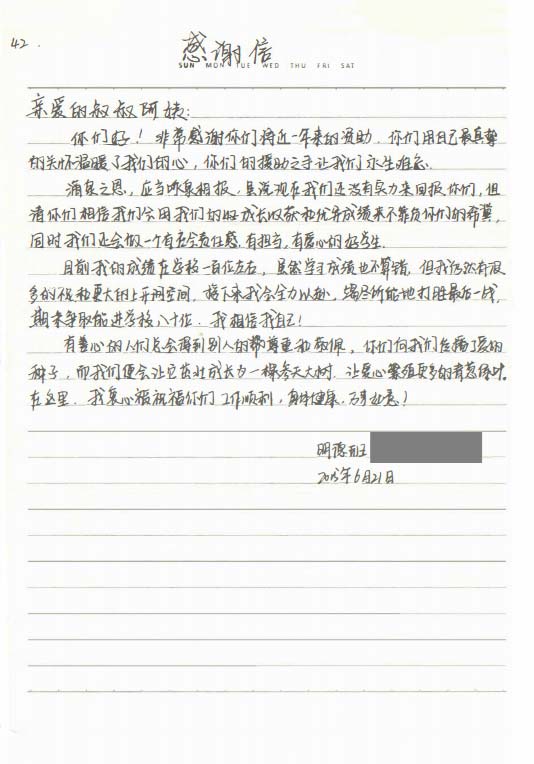 42.
感谢信
SUN MON TUE WED THU FRI SAT
亲爱的叔叔阿姨:
你们好！非常感谢你们将近一年来的资助。你们用自己最真挚
的关怀温暖了我们的心，你们的援助之手让我们永生难忘。
滴泉之恩，应当涌泉相报，虽说现在我们还没有灵力来回报你们，但
请你们相信我们会用我们的成长收获和优异成绩来不辜负你们的希冀，
同时我们还会做一个有社会责任感，有担当，有爱心的好学生.
目前我的成绩在学校一百位左右，虽然学习成绩也不算错，但我仍然有很
多的不足和更大的上升空间，接下来我会全力以赴，竭尽所能地打胜最后一战，
期末争取能进学校八十位．我相信我自己！
有善心的人们总会得到别人的尊重和敬佩，你们向我们传播了爱的
种子，而我们便会让它茁壮成长为一棵参天大树．让爱心繁殖更多的
在这里．我衷心祝福你们工作顺利，身体健康，万事如意！
明德班
2015年6月21日